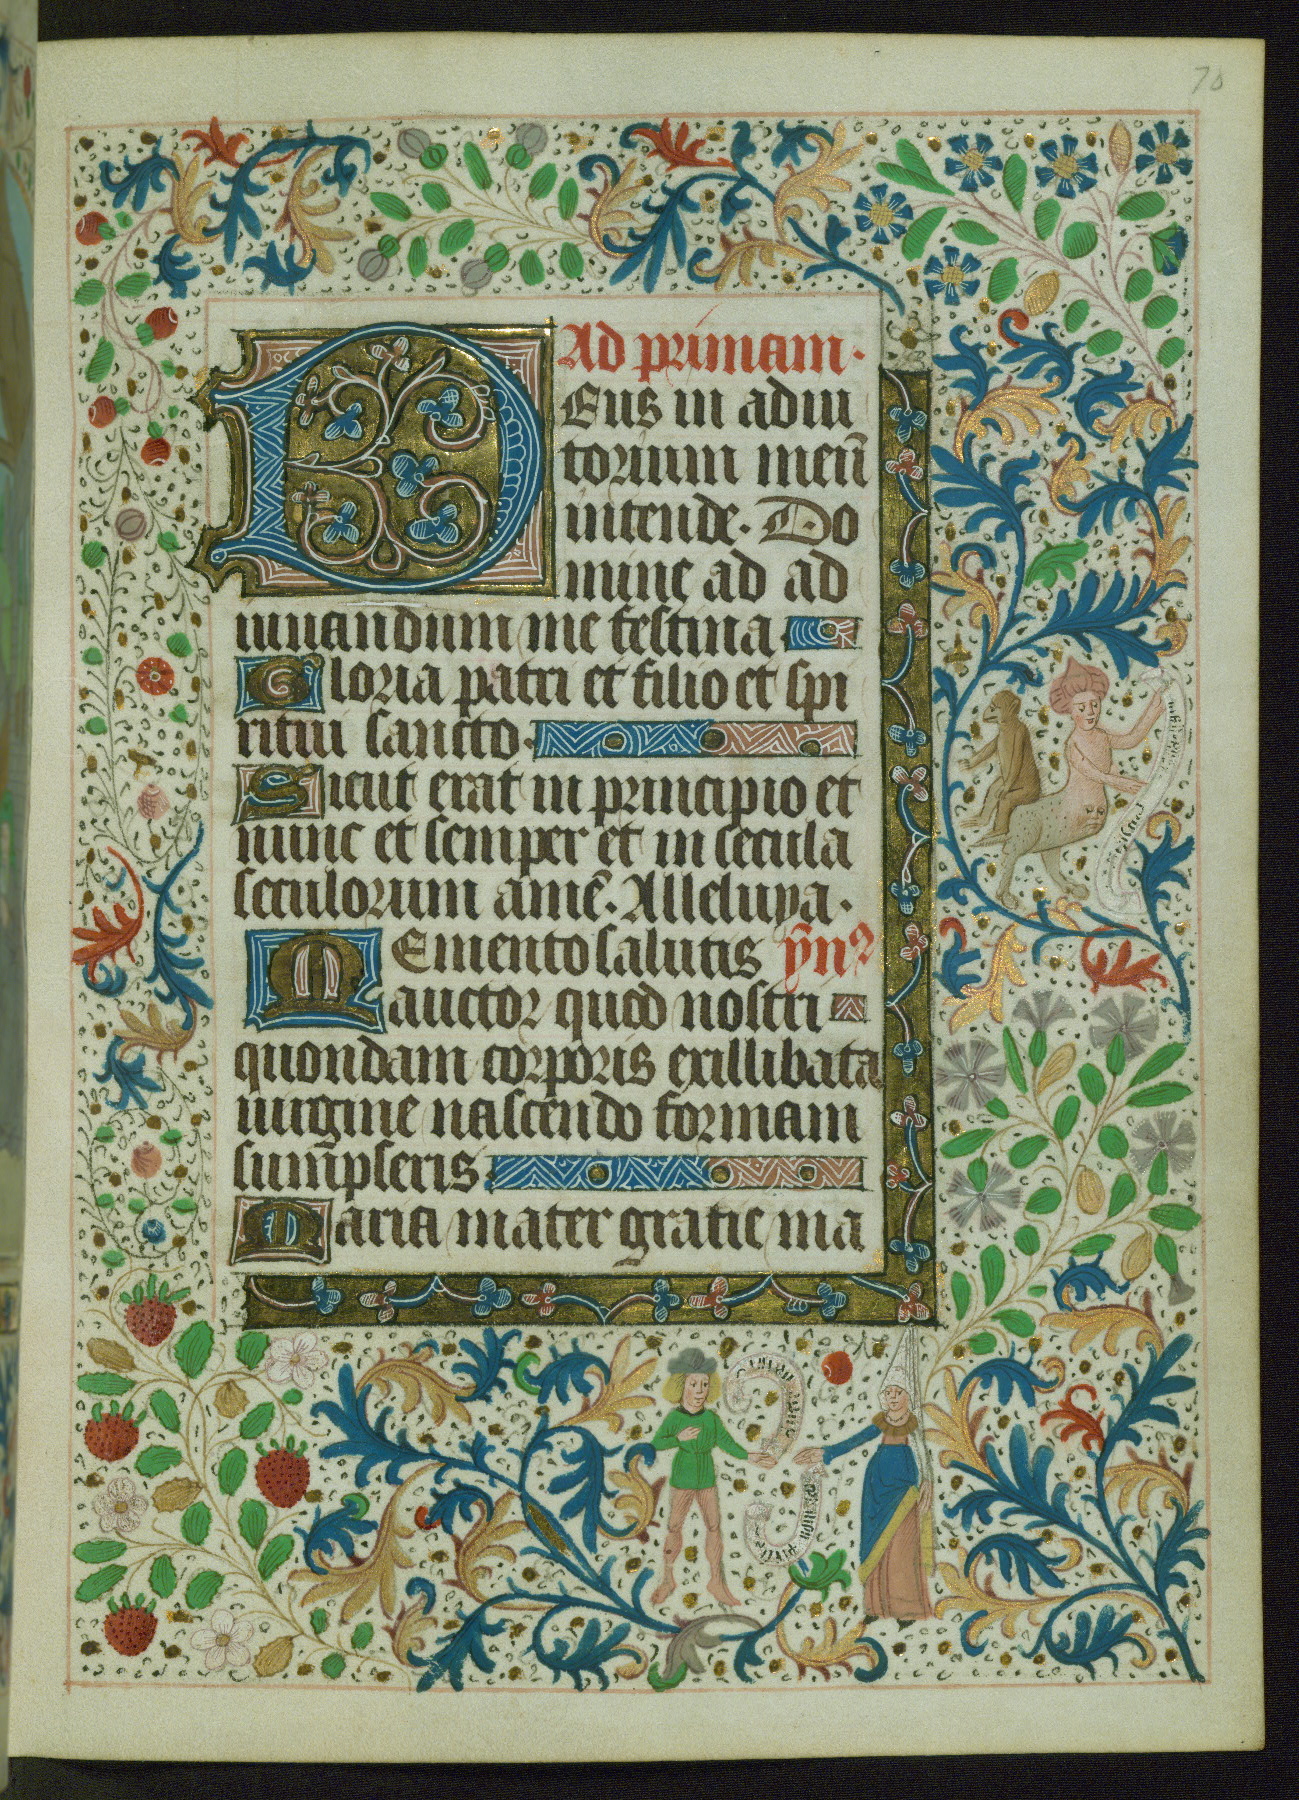 70
Ad primam.
Deus in adiu
torium meū
intende. Do
mine ad ad
iuuandum me festina
Gloria patri et filio et spi
ritui sancto.
Sicut erat in principio et
nunc et semper et in secula
seculorum amē. Alleluya.
Memento salutis ÿmꝰ
auctor quod nostri
quondam corporis ex illibata
uirgine nascendo formam
sumpseris
Maria mater gratie ma